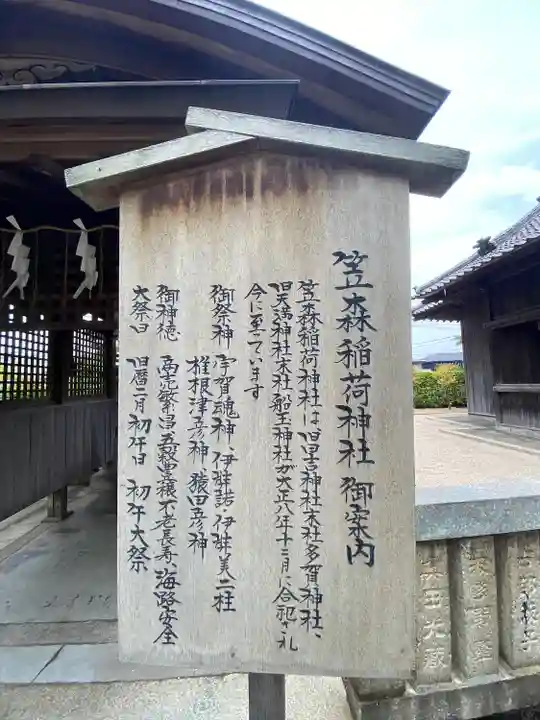 笠森稲荷神社 御案内
笠森稲荷神社は、旧早吉神社末社多賀神社、
旧天満神社末社船玉神社が大正八年十二月に合祀され
今に至っています
御祭神 宇賀魂神、伊弉諾・伊弉美二柱
椎根津彦神 猿田彦神
御神徳 商売繁昌五穀豊穣不老長寿、海路安全
大祭日 旧暦二月初午日 初午大祭